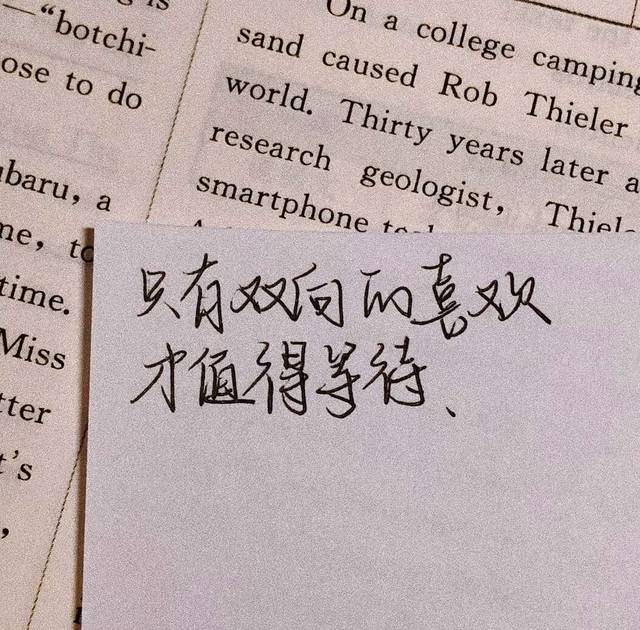 —“botchi-
ose to do
baru, a
me, to
time.
Miss
tter
t's
,
On a college camping
sand caused Rob Thieler
world. Thirty years later a
research geologist, Thiele
smartphone
只有双向的喜欢
才值得等待、